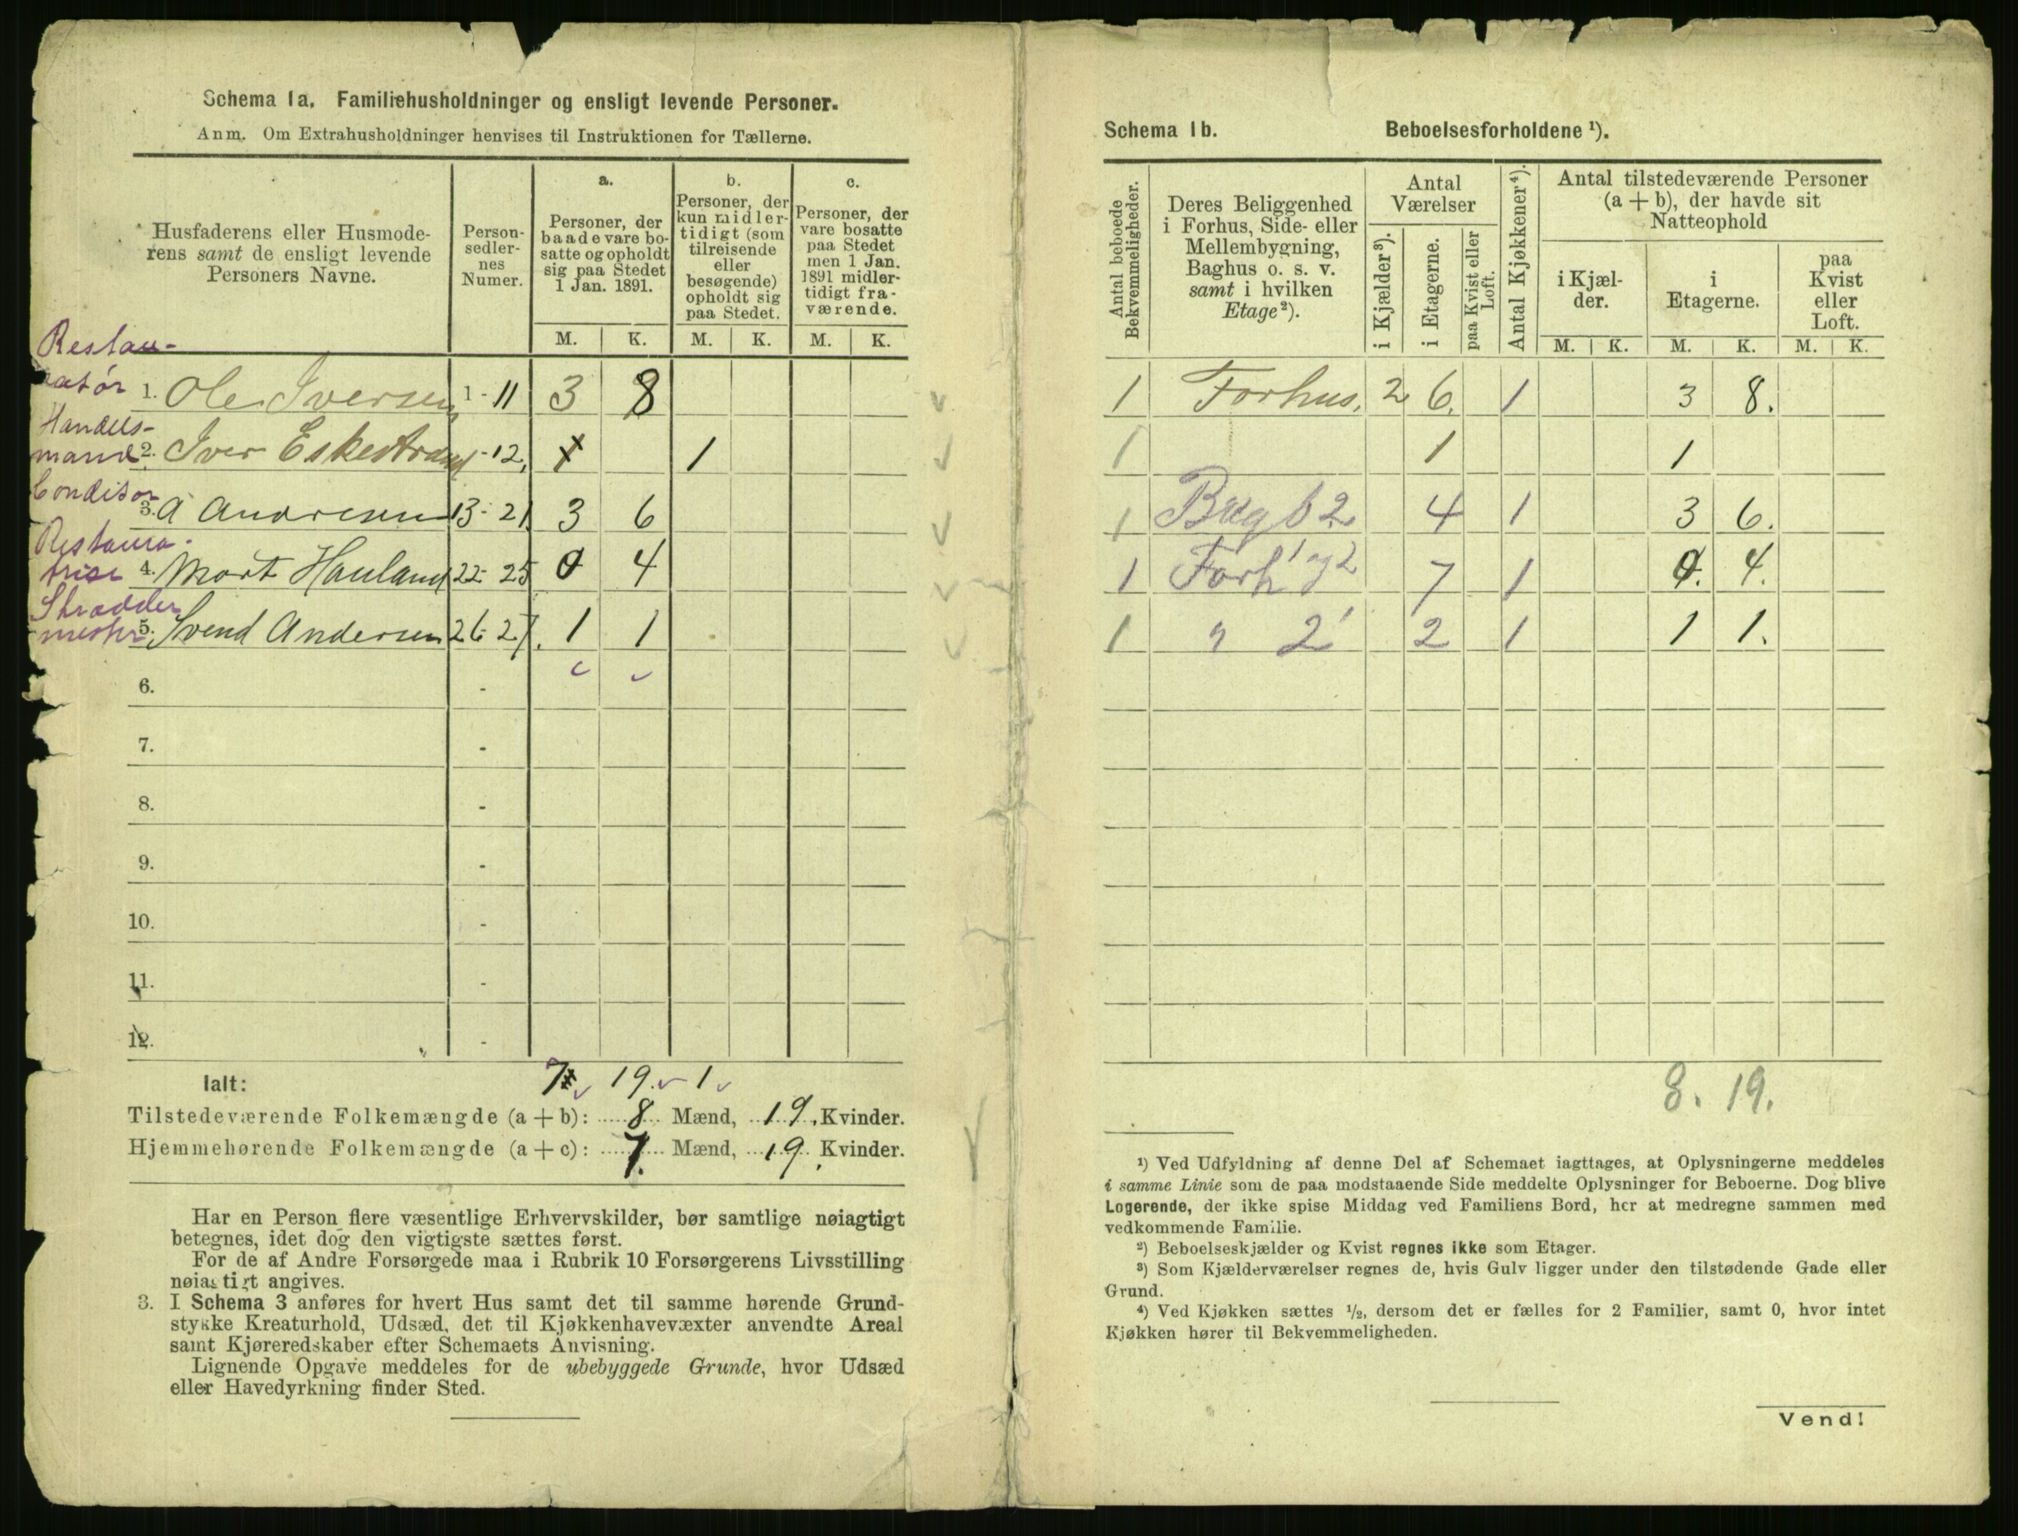 Schema 1a. Familiehusholdninger og ensligt levende Personer.
Anm. Om Extrahusholdninger henvises til Instruktionen for Tællerne.
Husfaderens eller Husmode-
rens samt de ensligt levende
Personers Navne.
Person-
sedler-
nes
Numer.
a.
Personer, der
baade vare bo-
satte og opholdt
sig paa Stedet
1 Jan. 1891.
b.
Personer, der
kun midler-
tidigt (som
tilreisende
eller
besøgende)
opholdt sig
paa Stedet.
c.
Personer, der
vare bosatte
paa Stedet
men 1 Jan.
1891 midler-
tidigt fra-
værende.
M. K. M. K. M. K.
Restau-
ratör 1. Ole Iversen 1 - 11 3 8
Handels-
mand 2. Iver Eskestrand - 12. 1
Conditor
3. A Andresen 13 - 21 3 6
Restaura-
trise 4. Mart Hauland 22 - 25 0 4
Skrædder
mester 5. Svend Andersen 26 - 27. 1 1
6. -
7. -
8. -
9. -
10. -
11. -
12. -
Ialt: 7 19. - 1
Tilstedeværende Folkemængde (a + b): 8 Mænd, 19. Kvinder.
Hjemmehørende Folkemængde (a + c): 7. Mænd, 19. Kvinder.
Har en Person flere væsentlige Erhvervskilder, bør samtlige nøiagtigt
betegnes, idet dog den vigtigste sættes først.
For de af Andre Forsørgede maa i Rubrik 10 Forsørgerens Livsstilling
nøiagtigt angives.
3. I Schema 3 anføres for hvert Hus samt det til samme hørende Grund-
stykke Kreaturhold, Udsæd, det til Kjøkkenhavevæxter anvendte Areal
samt Kjøreredskaber efter Schemaets Anvisning.
Lignende Opgave meddeles for de ubebyggede Grunde, hvor Udsæd
eller Havedyrkning finder Sted.
Schema 1b. Beboelsesforholdene ¹).
Antal beboede
Bekvemmeligheder.
Deres Beliggenhed
i Forhus, Side- eller
Mellembygning,
Baghus o. s. v.
samt i hvilken
Etage ²).
Antal
Værelser
i Kjælder ³).
i Etagerne.
paa Kvist eller
Loft.
Antal Kjøkkener ⁴).
Antal tilstedeværende Personer
(a + b), der havde sit
Natteophold
i Kjæl-
der.
i
Etagerne.
paa
Kvist
eller
Loft.
M. K. M. K. M. K.
1 Forhus. 2 6. 1 3 8.
1 1 1
1 Bagb 2 4 1 3 6.
1 Forh 1 og 2 7 1 0. 4.
1 " 2 2 1 1 1.
8. 19.
¹) Ved Udfyldning af denne Del af Schemaet iagttages, at Oplysningerne meddeles
i samme Linie som de paa modstaaende Side meddelte Oplysninger for Beboerne. Dog blive
Logerende, der ikke spise Middag ved Familiens Bord, her at medregne sammen med
vedkommende Familie.
²) Beboelseskjælder og Kvist regnes ikke som Etager.
³) Som Kjælderværelser regnes de, hvis Gulv ligger under den tilstødende Gade eller
Grund.
⁴) Ved Kjøkken sættes ½, dersom det er fælles for 2 Familier, samt 0, hvor intet
Kjøkken hører til Bekvemmeligheden.
Vend!